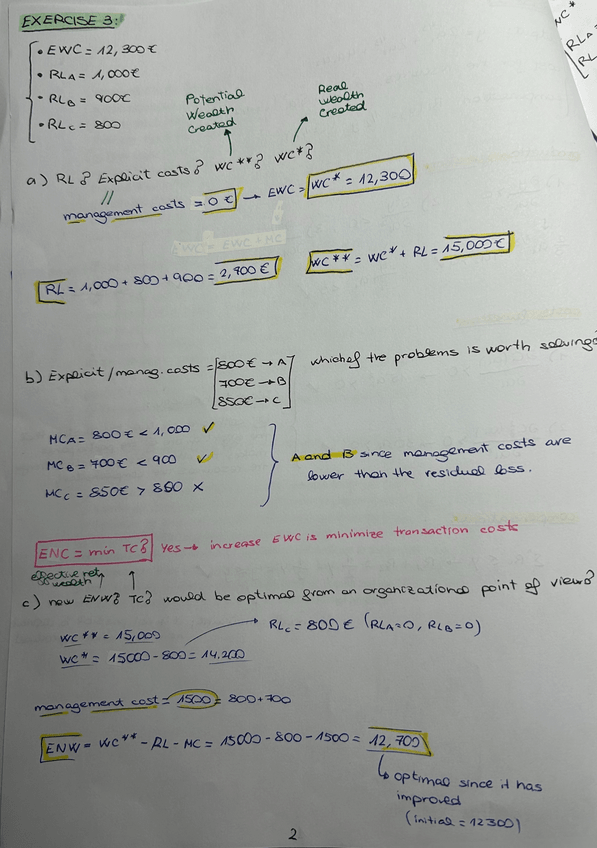 EXERCISE 3:
• EWC = 12,300€
• RLA = 1,000€
• RLB = 900€
• RLC = 800
Potential Wealth Created
Real Wealth Created
a) RL? Explicit costs? WC**? WC*?
management costs = 0€ → EWC = WC* = 12,300
RL = 1,000 + 800 + 900 = 2,700€
WC** = WC* + RL = 15,000€
b) Explicit/manag. costs = [800€ → A
700€ → B
850€ → C]
which of the problems is worth solving?
MCA = 800€ < 1,000 ✓
MCB = 700€ < 900 ✓
MCC = 850€ > 800 ×
A and B since management costs are
lower than the residual loss.
ENC = min TC? Yes → increase EWC is minimize transaction costs
effective net wealth
c) new ENW? TC? would be optimal from an organizational point of view?
WC** = 15,000
WC* = 15000 - 800 = 14,200
RLC = 800€ (RLA=0, RLB=0)
management cost = 1500 = 800+700
ENW = WC** - RL - MC = 15000 - 800 - 1500 = 12,700
optimal since it has
improved
(initial = 12300)
2
WC*
RLA =